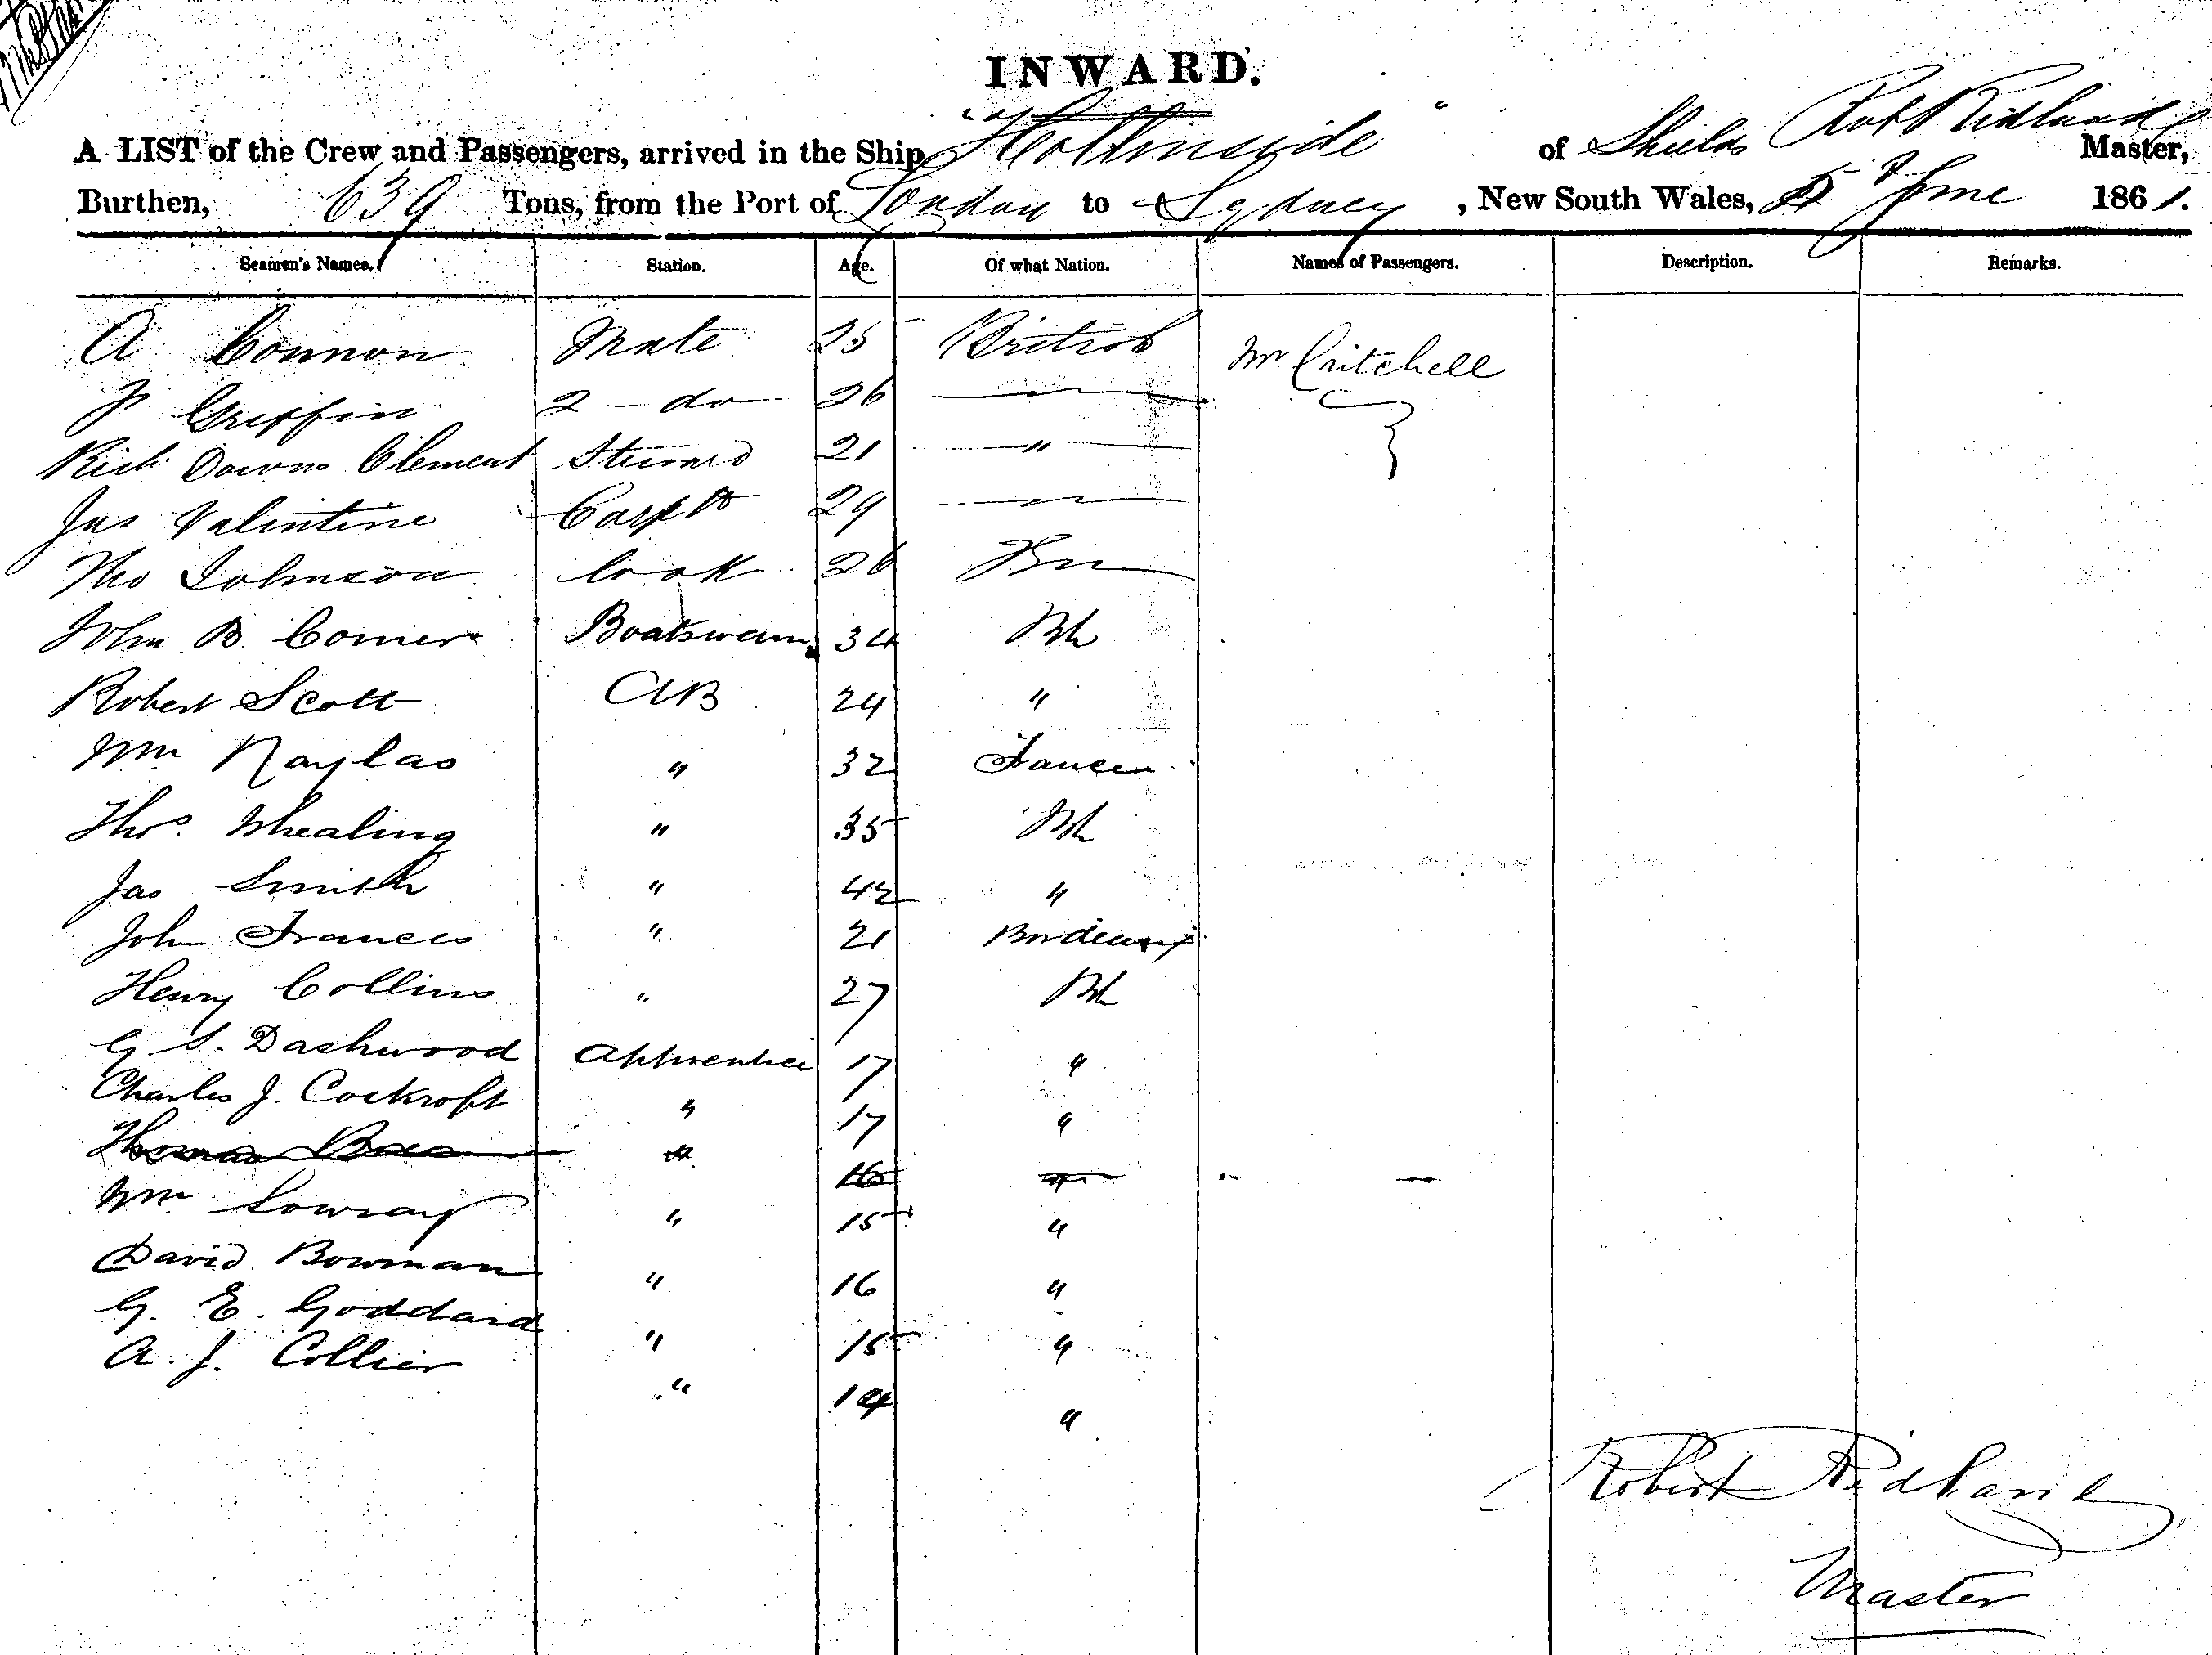 INWARD.
A LIST of the Crew and Passengers, arrived in the Ship "Hollinside" of Shields Robt Ridland Master,
Burthen, 639 Tons, from the Port of London to Sydney, New South Wales, 5 June 1861.
Seamen's Names. Station. Age. Of what Nation. Names of Passengers. Description. Remarks.
A Connon Mate 25 British Mr Critchell
P Griffin 2 - do 26 "
Rich Downs Clement Steward 21 "
Jas Valintine Carpt 29 "
Tho Johnson Cook 26
John B. Comer Boatswain 34 Bh
Robert Scott AB 24 "
Wm Naylas " 32
Thos. Whealing " 35 Bh
Jas Smith " 42 "
John Frances " 21 Bordeaux
Henry Collins " 27 Bh
G S. Dashwood Apprentice 17 "
Charles J. Cockroft " 17 "
Thomas " 16 "
Wm Lowray " 15 "
David Bowman " 16 "
G. E. Goddard " 15 "
A. J. Collier " 14 "
Robert Ridland
Master